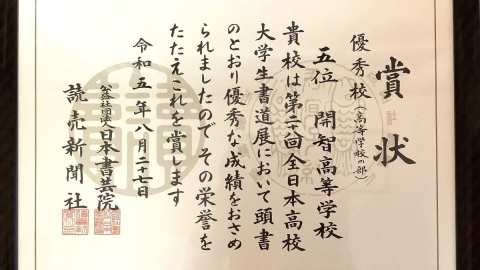 賞状
優秀校(高等学校の部)
五位 開智高等学校
貴校は第二八回全日本高校
大学生書道展において頭書
のとおり優秀な成績をおさめ
られましたので その栄誉を
たたえこれを賞します
令和五年八月二十七日
公益社団法人日本書芸院
読売新聞社